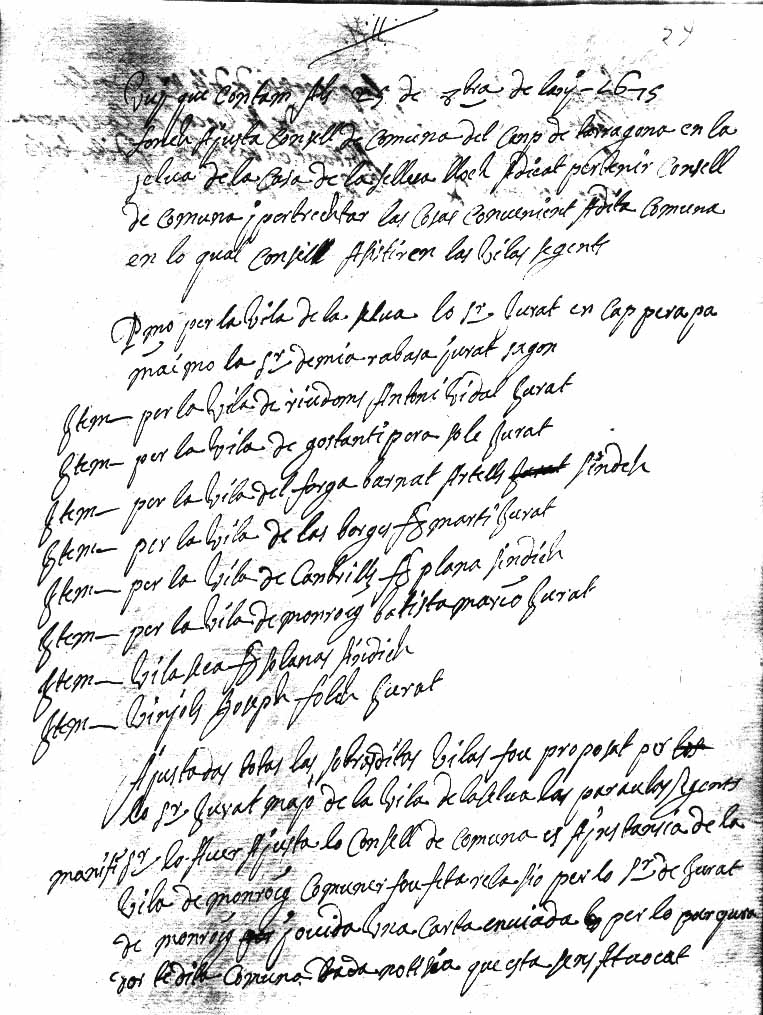 .ll.
24
Vuy que contam als 25 de de lany 1675
fonch Ajusta Consell de Comuna del Camp de tarragona en la
selva de la Casa de la sellva lloch Adicat pertenir Consell
de Comuna j pertrectar las Cosas Convenient Adita Comuna
en lo qual Consell Asistiren las Vilas segents
Pmo per la Vila de la selua lo sr Jurat en Cap pera pa
maimo la sr demia rabasa jurat sagon
Item per la Vila de riudoms Antoni Vidal Jurat
Item per la Vila de gostanti pera sole Jurat
Item per la Vila del forga barnat Artells Jurat sindich
Item per la Vila de las borges marti Jurat
Item per la Vila de Canbrills plana sindich
Item per la Vila de monroig batista marco Jurat
Item Vila seca planas sindich
Item Vinjols Joseph folch Jurat
Ajustadas totas las sobreditas Vilas fou proposat per los
lo sr Jurat majo de la Vila de la selua las paraulas segents
sr lo Auer Ajusta lo Consell de Comuna es Ainstansia de la
Vila de monroig Comuner fou feta rela sio per lo sr de Jurat
de monroig j ouida Vna Carta enuiada per lo parcura
dor de dita Comuna donada notisia que esta sens